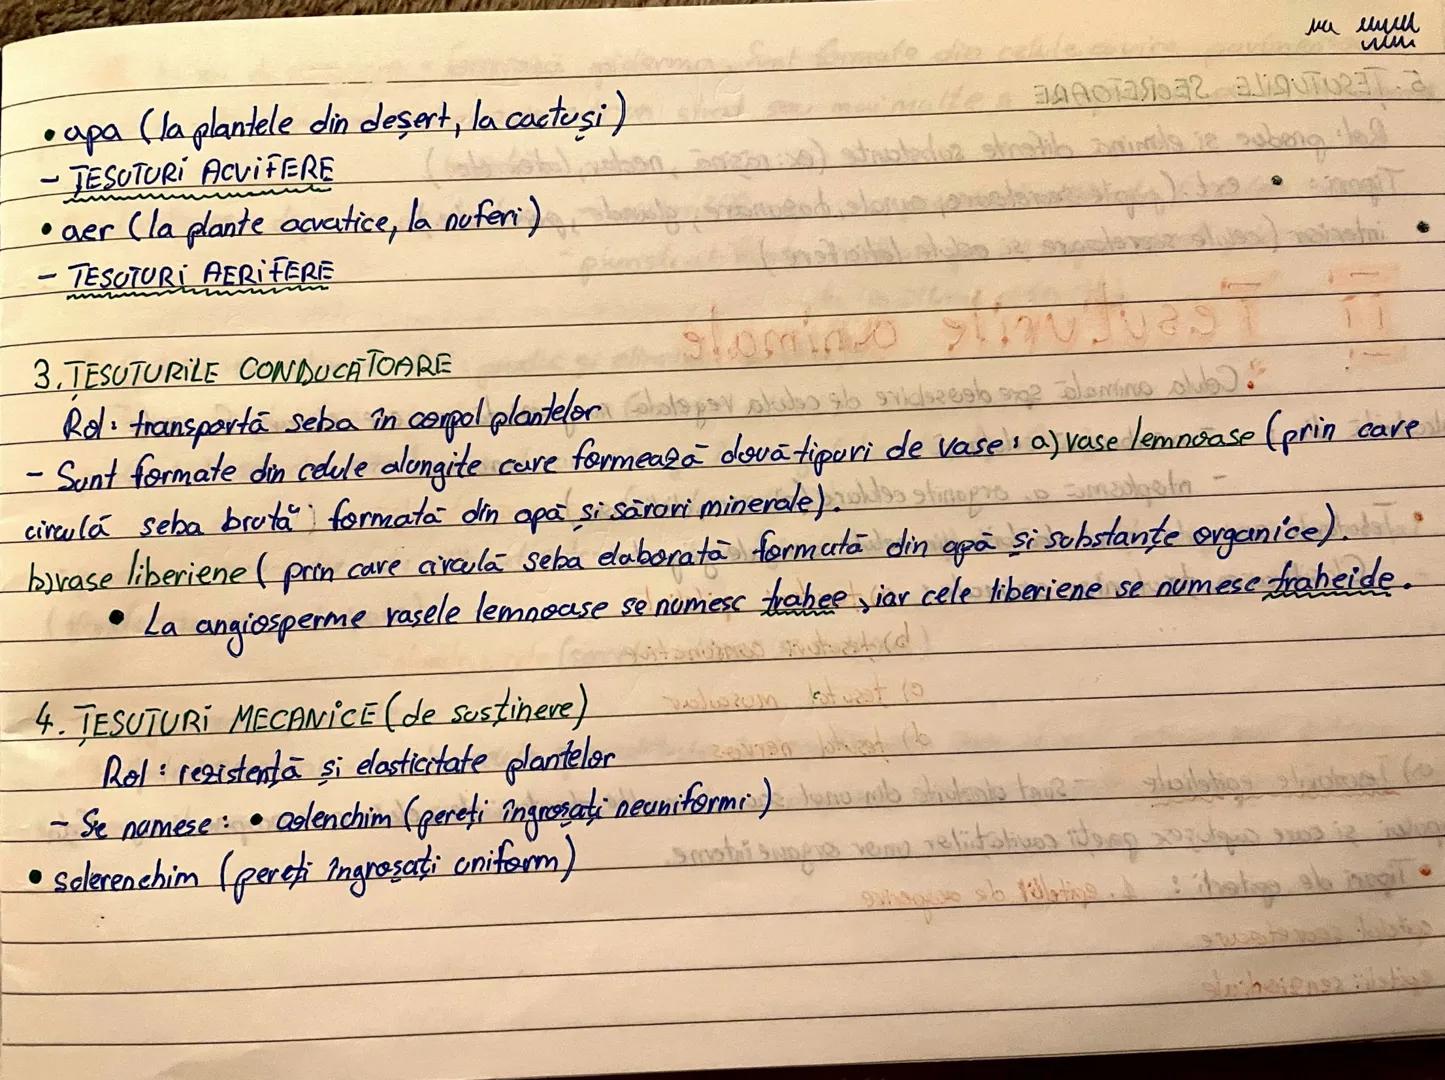 • apa (la plantele din deșert, la cactuși)
- ȚESUTURI ACVIFERE
• aer (la plante acvatice, la nuferi)
- ȚESUTURI AERIFERE
3. ȚESUTURILE CONDUCĂTOARE
Rol: transportă seba în corpul plantelor
- Sunt formate din celule alungite care formează două tipuri de vase: a) vase lemnoase (prin care
circulă seba brută; formată din apă și săruri minerale).
b) vase liberiene (prin care circulă seba elaborată formată din apă și substanțe organice).
• La angiosperme vasele lemnoase se numesc trahee, iar cele liberiene se numesc traheide.
4. ȚESUTURI MECANICE (de susținere)
Rol: rezistență și elasticitate plantelor
- Se numesc: • colenchim (pereți îngroșați neuniformi)
• sclerenchim (pereți îngroșați uniform)